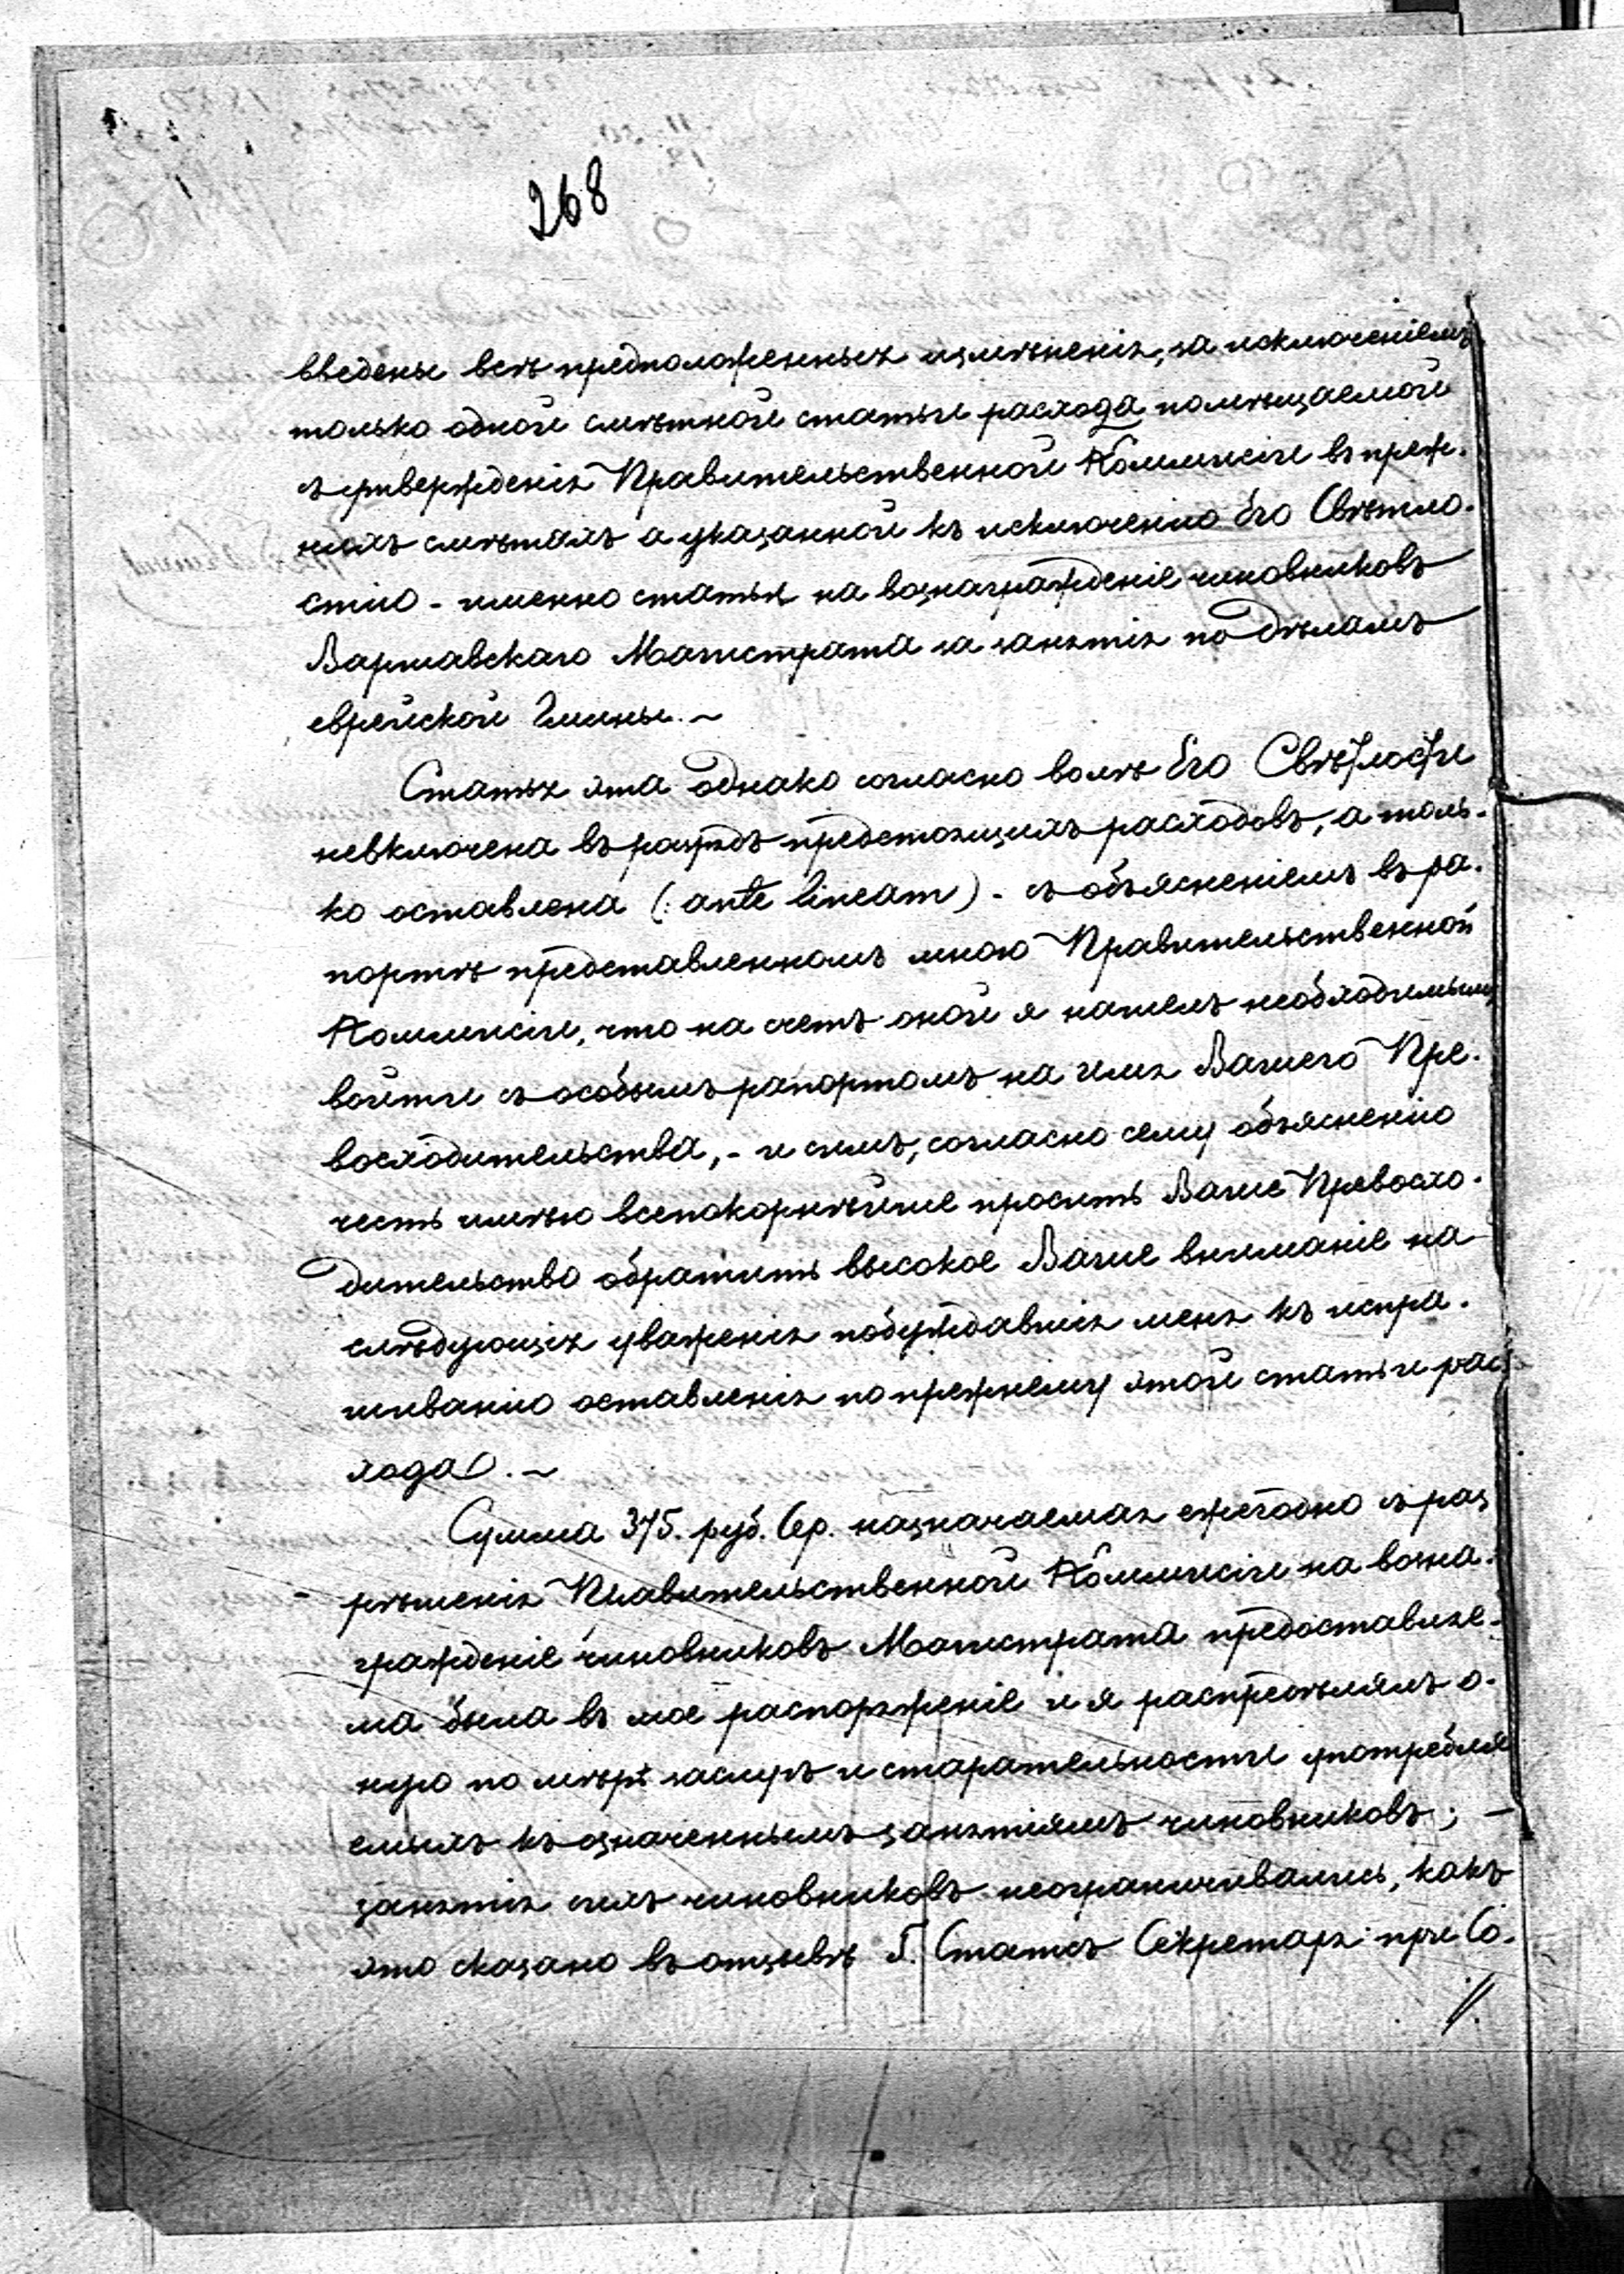 268
введены всѣ предположенныя измѣненія, за исключеніемъ
только одной смѣтной статьи расхода помѣщаемой
съ утвержденія Правительственной Коммисіи въ преж-
нихъ смѣтахъ а указанной къ исключенію Его Свѣтло-
стію - именно статьи на вознагражденіе чиновниковъ
Варшавскаго Магистрата за занятія по дѣламъ
еврейской Гмины. ~
Статья эта однако согласно волѣ Его Свѣтлости
невключена въ разрядъ предстоящихъ расходовъ, а толь-
ко оставлена (: ante lineam) - съ объясненіемъ въ ра-
портѣ представленномъ мною Правительственной
Коммисіи, что на счетъ оной я нашелъ необходимымъ
войти съ особымъ рапортомъ на имя Вашего Пре-
восходительства, - и симъ, согласно сему объясненію
честь имѣю всепокорнѣйше просить Ваше Превосхо-
дительство обратить высокое Ваше вниманіе на
слѣдующія уваженія побуждавшія меня къ испра-
шиванію оставленія по прежнему этой статьи рас-
хода. ~
Сумма 375. руб. Сер. назначаемая ежегодно съ раз
рѣшенія Правительственной Коммисіи на возна-
гражденіе чиновниковъ Магистрата предоставляе-
ма была въ мое распоряженіе и я распредѣлялъ о-
ную по мѣрѣ заслугъ и старательности употребля
емыхъ къ означеннымъ занятіямъ чиновниковъ; -
занятія сихъ чиновниковъ неограничивались, какъ
это сказано въ отзывѣ Г. Статсъ Секретаря при Со-
//.